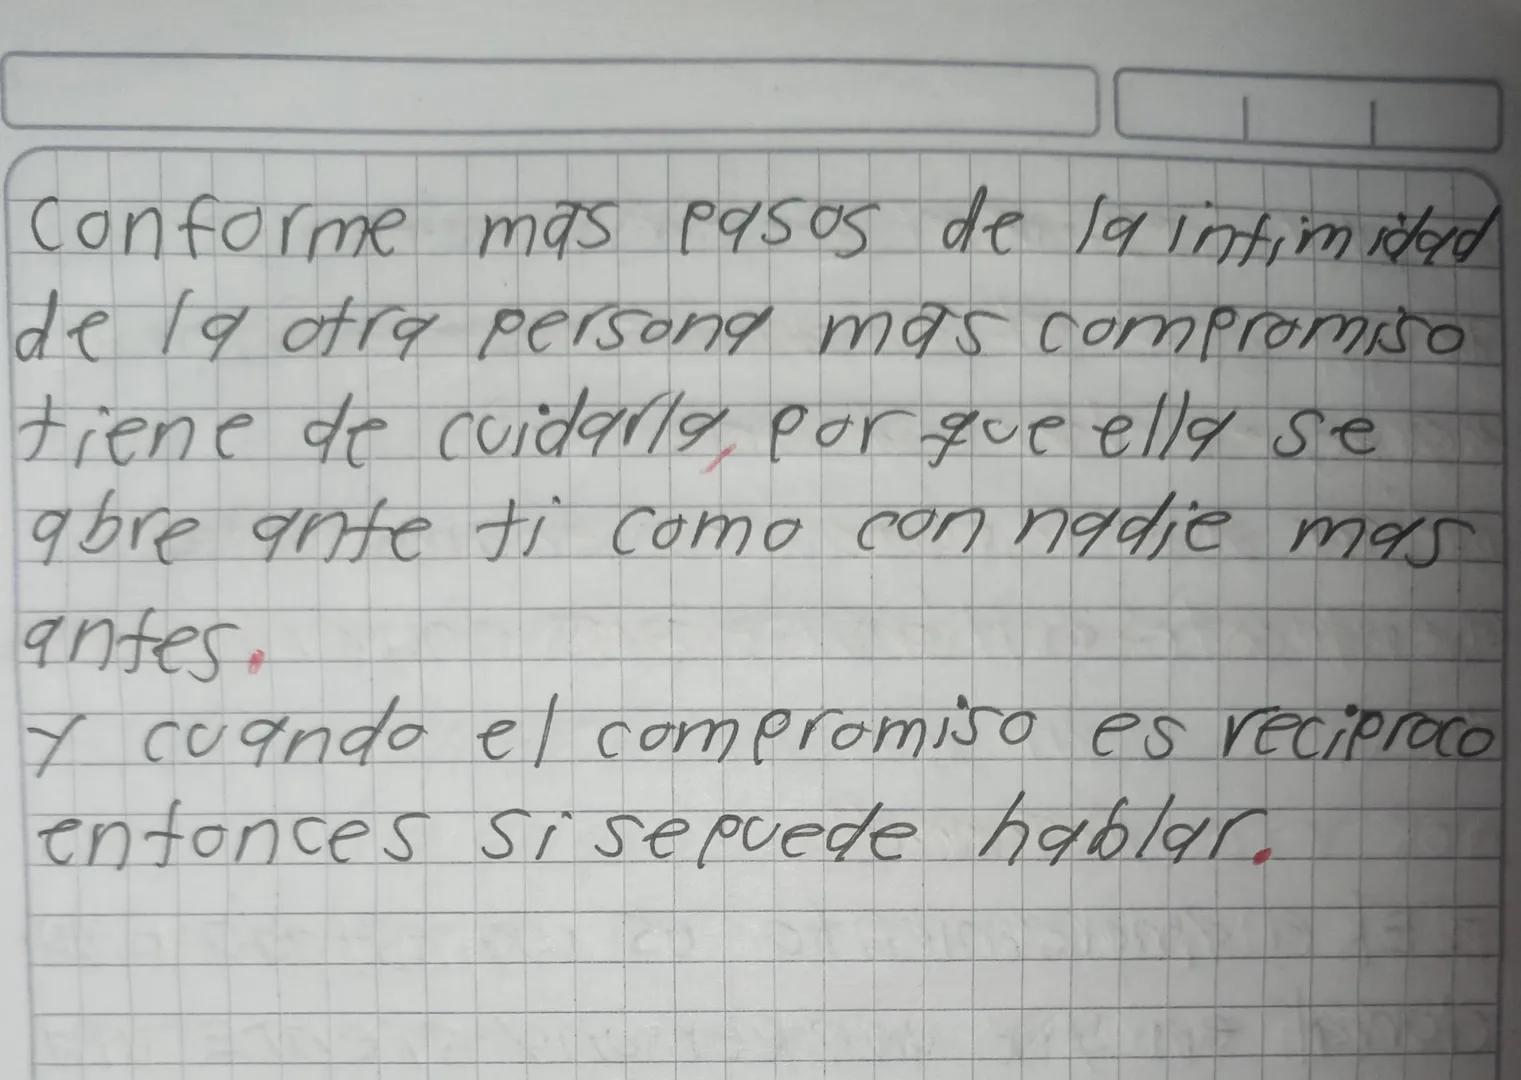 conforme mas pasos de la intimidad
de la otra persona mas compromiso
tiene de cuidarla, por que ella se
abre ante ti como con nadie mas
antes.
Y cuando el compromiso es reciproco
entonces si se puede hablar.